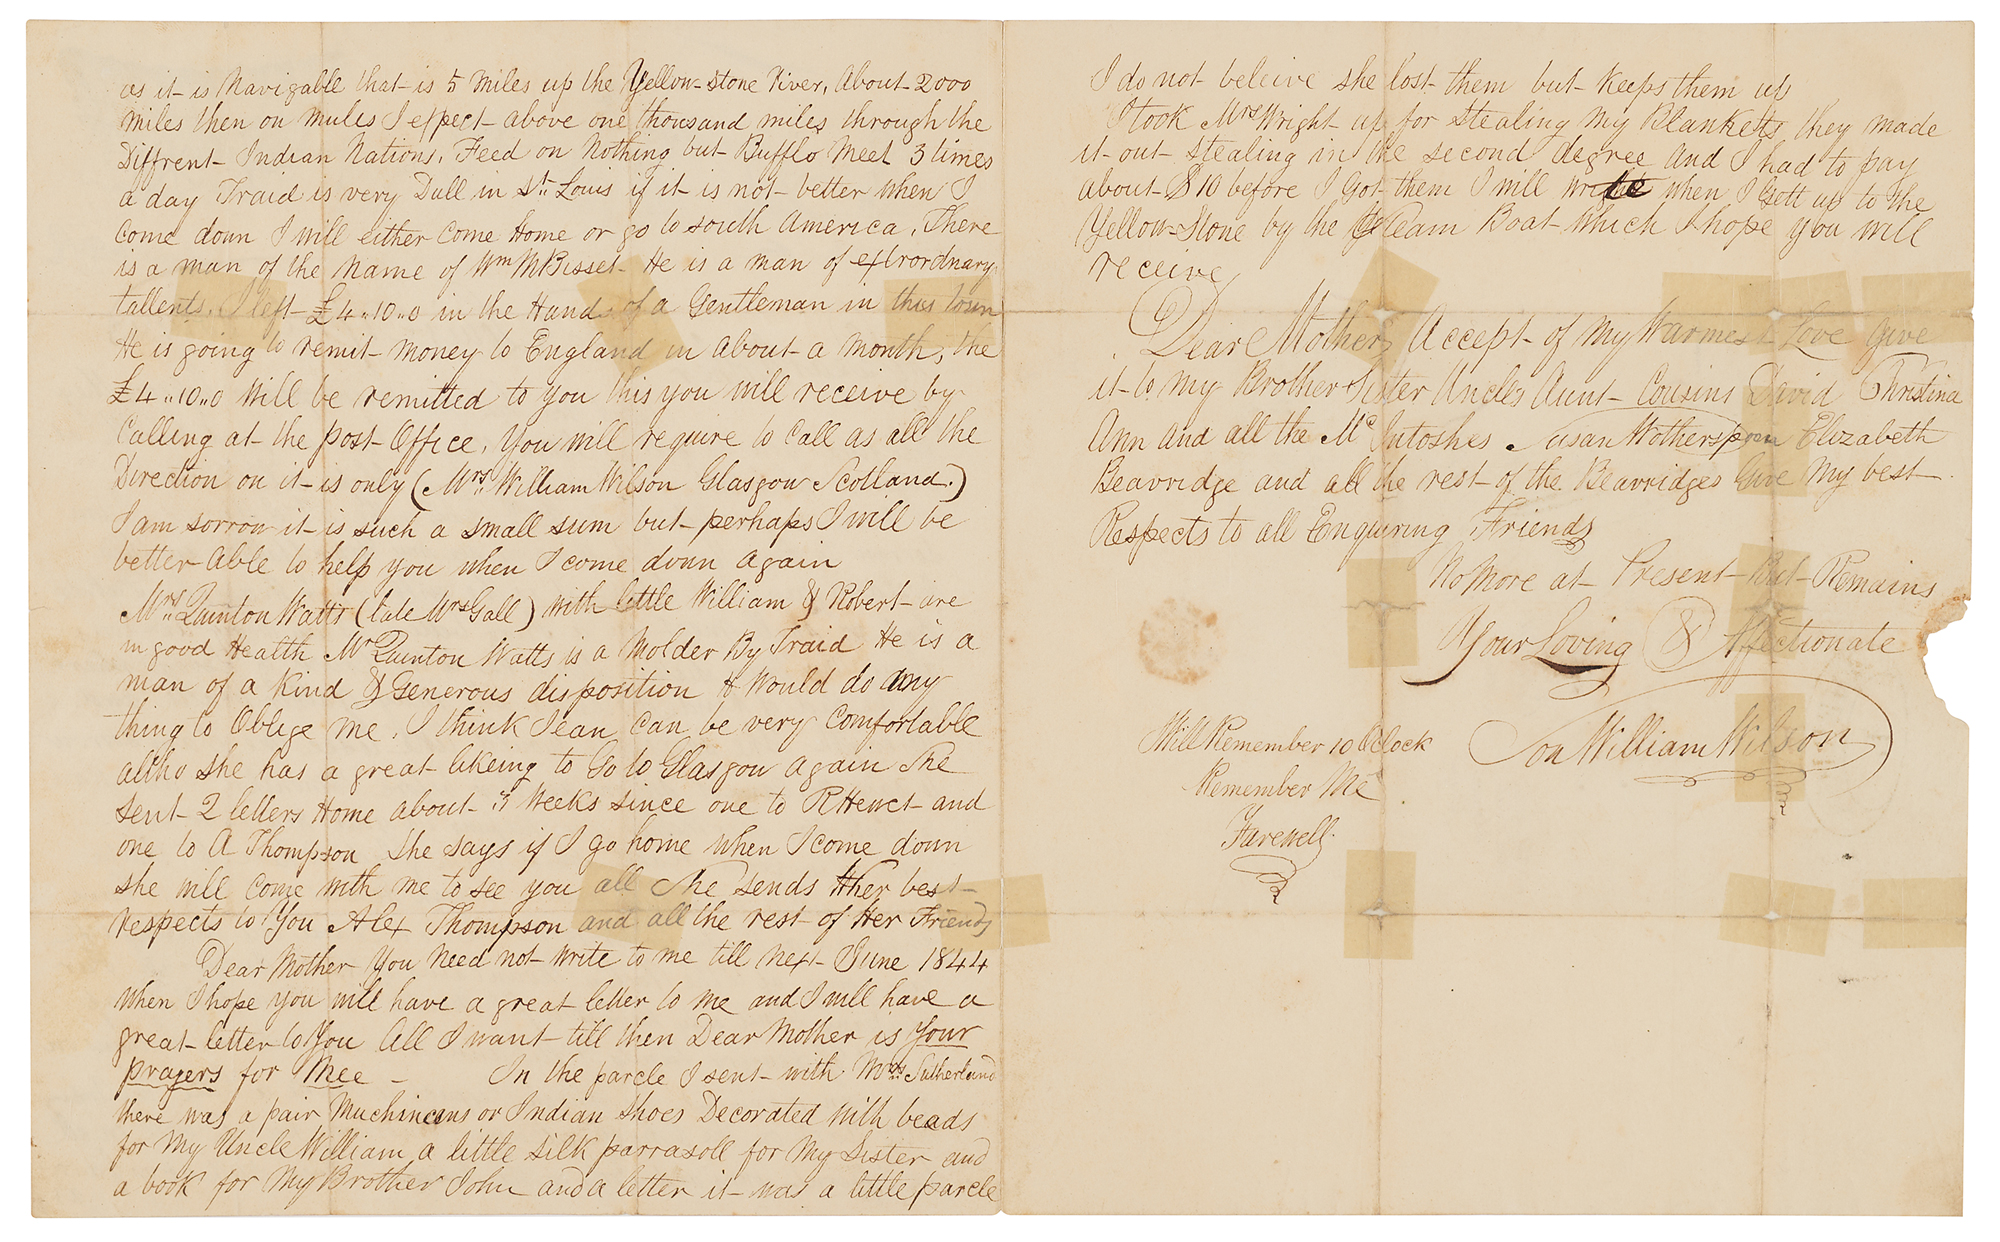 as it is Navigable that is 5 Miles up the Yellow-Stone River, About 2000
Miles then on mules I expect above one thousand miles through the
Diffrent Indian Nations. Feed on Nothing but Bufflo Meet 3 times
a day Traid is very Dull in St. Louis if it is not better when I
Come down I will either Come Home or go to South America. There
is a man of the name of Wm McBisset He is a man of extrordnary
tallents. I left £4..10..0 in the Hands of a Gentleman in this town
He is going to remit money to England in about a month, the
£4..10..0 Will be remitted to you this you will receive by
Calling at the post Office. You will require to Call as all the
Direction on it is only (Mrs. William Wilson Glasgow Scotland.)
I am sorrow it is such a small sum but perhaps I will be
better Able to help you when I come down again
Mrs. Quinton Watts (late Mrs Gall) with little William & Robert are
in good Health Mr Quinton Watts is a Molder By Traid He is a
man of a kind & Generous disposition & Would do any
thing to Oblige me. I think Jean Can be very Comfortable
altho She has a great likeing to Go to Glasgow again She
sent 2 letters Home about 3 Weeks since one to R Hewet and
one to A Thompson She says if I go home when I come down
she will Come with me to see you all She sends Her best
respects to You Alex Thompson and all the rest of Her Friends
Dear Mother You Need not Write to me till Next June 1844
When I hope you will have a great letter to me and I will have a
great letter to You All I want till then Dear Mother is Your
prayers for Mee – In the parcle I sent with Mrs. Sutherland
there was a pair Muchincens or Indian Shoes Decorated with beads
for My Uncle William a little silk parrasoll for My Sister and
a book for My Brother John and a letter it was a little parcle
I do not beleive she lost them but keeps them up
I took Mrs Wright up for stealing My Blanketts, they made
it out stealing in the second degree and I had to pay
about $10 before I Got them I will write when I Gett up to the
Yellow-Stone by the Steam Boat which I hope you will
receive
Dear Mother Accept of My Warmest Love Give
it to My Brother Sister Uncles Aunt Cousins David Christina
Ann and all the McIntoshes Susan Wotherspoon Elizabeth
Beavridge and all the rest of the Beavridges Give My best
Respects to all Enquring Friends
No More at Present But Remains
Your Loving & Affectionate
Son William Wilson
Will Remember 10 Oclock
Remember Me
Farewell